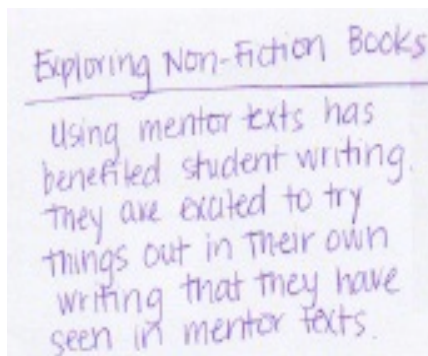 Exploring Non-Fiction Books
Using mentor texts has
benefited student writing.
They are excited to try
things out in their own
writing that they have
seen in mentor texts.